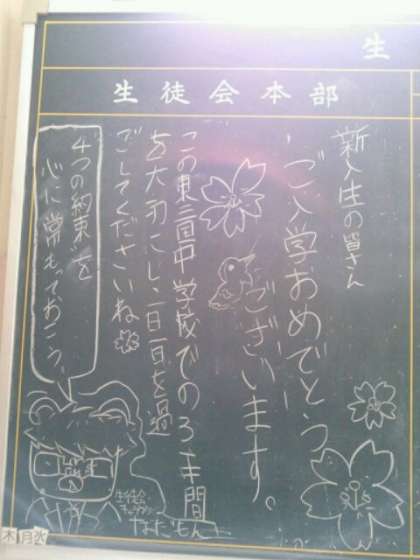 生
生徒会本部
新入生の皆さん
ご入学おめでとう
ございます。
この東三国中学校での3年間
を大切にし、一日一日を過
ごしてくださいね
4つの約束を
心に常もっておこう。
生徒会
木
月